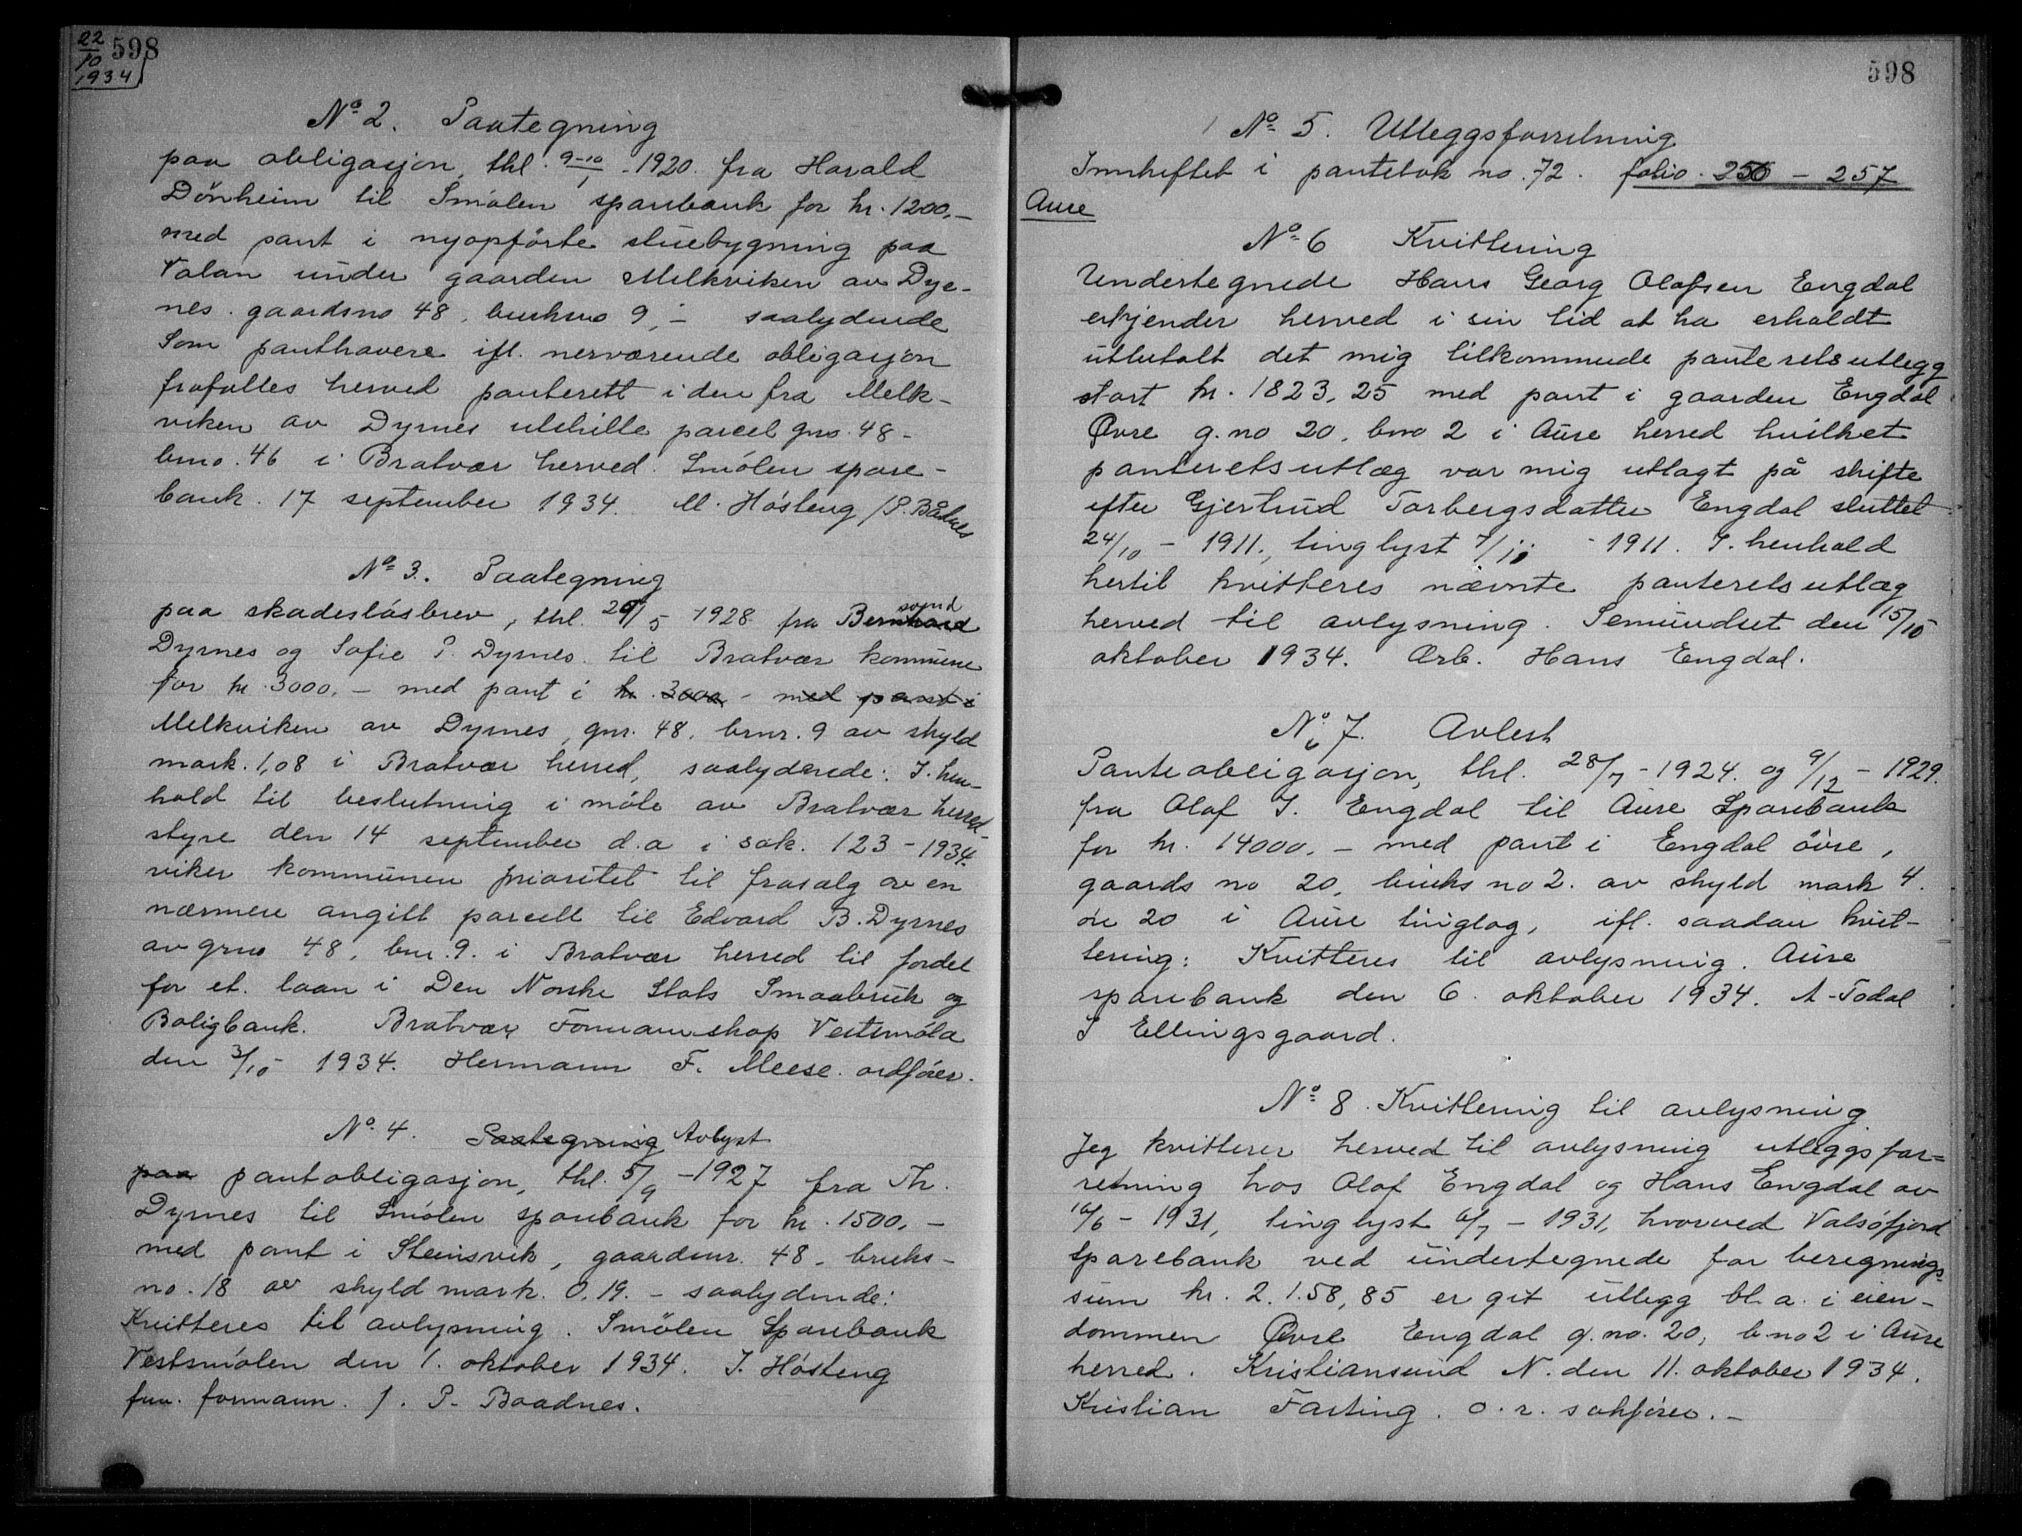 22/10 1934
598
No 2. Paategning
paa obligasjon, thl. 9-10/1 - 1920. fra Harald
Dönheim til Smölen sparebank for kr. 1200,-
med pant i nyopførte stuebygning paa
Valan under gaarden Melkviken av Dyr-
nes. gaardsno 48, bruksno 9,- saalydende
Som panthavere ifl. nerværende obligasjon
frafalles herved panterett i den fra Melk-
viken av Dyrnes utskilte parcel gno. 48 -
bno. 46 i Bratvær herred. Smölen spare-
bank. 17 september 1934. M. Hösteng /P. Bådnes
No 3. Paategning
paa skadeslösbrev, thl. 29/5 1928 fra Bernhard
Dyrnes og Sofie P. Dyrnes til Bratvær kommune
for kr. 3000,- med pant i kr. 3000,- med pant i
Melkviken av Dyrnes, gnr. 48, brnr. 9 av skyld
mark. 1,08 i Bratvær herred, saalydende: I hen-
hold til beslutning i möte av Bratvær herred-
styre den 14 september d.a i sak. 123 - 1934.
viker kommunen prioritet til frasalg av en
nærmere angitt parcell til Edvard B. Dyrnes
av grno 48, bnr. 9. i Bratvær herred til fordel
for et. laan i Den Norske Stats Smaabruk og
Boligbank. Bratvær Formannskap Vestsmöla
den 3/10 - 1934. Hermann F. Meese. ordförer.
No 4. Paategning Avlyst
paa pantobligasjon, thl. 5/9 - 1927 fra Th.
Dyrnes til Smölen sparebank for kr. 1500,-
med pant i Steinsvik, gaardsnr. 48 - bruks-
no. 18 av skyld mark. 0,19. - saalydende:
Kvitteres til avlysning. Smölen Sparebank
Vestsmölen den 1. oktober 1934. J. Hösteng
fun. formann. /. P. Baadnes.
598
No 5. Utleggsforretning
Innheftet i pantebok no. 72. folio. 256 - 257
Aure
No 6 Kvittering
Undertegnede Hans Georg Olafsen Engdal
erkjender herved i sin tid at ha erholdt
utbetalt det mig tilkommende panteretsutlegg
stort kr. 1823,25 med pant i gaarden Engdal
Øvre g.no 20, bno 2 i Aure herred hvilket
panteretsutlæg var mig utlagt på skifte
efter Gjertrud Torbergsdatter Engdal sluttet
24/10 - 1911, tinglyst 7/11 - 1911. I henhold
hertil kvitteres nævnte panteretsutlæg
herved til avlysning. Semundset den 15/10
oktober 1934. Ærb. Hans Engdal.
No 7. Avlest
Panteobligasjon, thl. 28/7 - 1924. og 9/12 - 1929.
fra Olaf J. Engdal til Aure Sparebank
for kr. 14000,- med pant i Engdal övre,
gaards no 20, bruks no 2. av skyld mark 4.
öre 20 i Aure tinglag, ifl. saadan kvit-
tering: Kvitteres til avlysning. Aure
sparebank den 6. oktober 1934. A. Todal
S Ellingsgaard.
No 8. Kvittering til avlysning
Jeg kvitterer herved til avlysning utleggsfor=
retning hos Olaf Engdal og Hans Engdal av
16/6 - 1931, tinglyst 6/7 - 1931, hvorved Valsöfjord
Sparebank ved undertegnede for beregnings
sum kr. 2.158,85 er git utlegg bl. a. i eien-
dommen Øvre Engdal g.no. 20, b.no 2 i Aure
herred. Kristiansund N. den 11. oktober 1934.
Kristian Fasting. o.r. sakförer.-